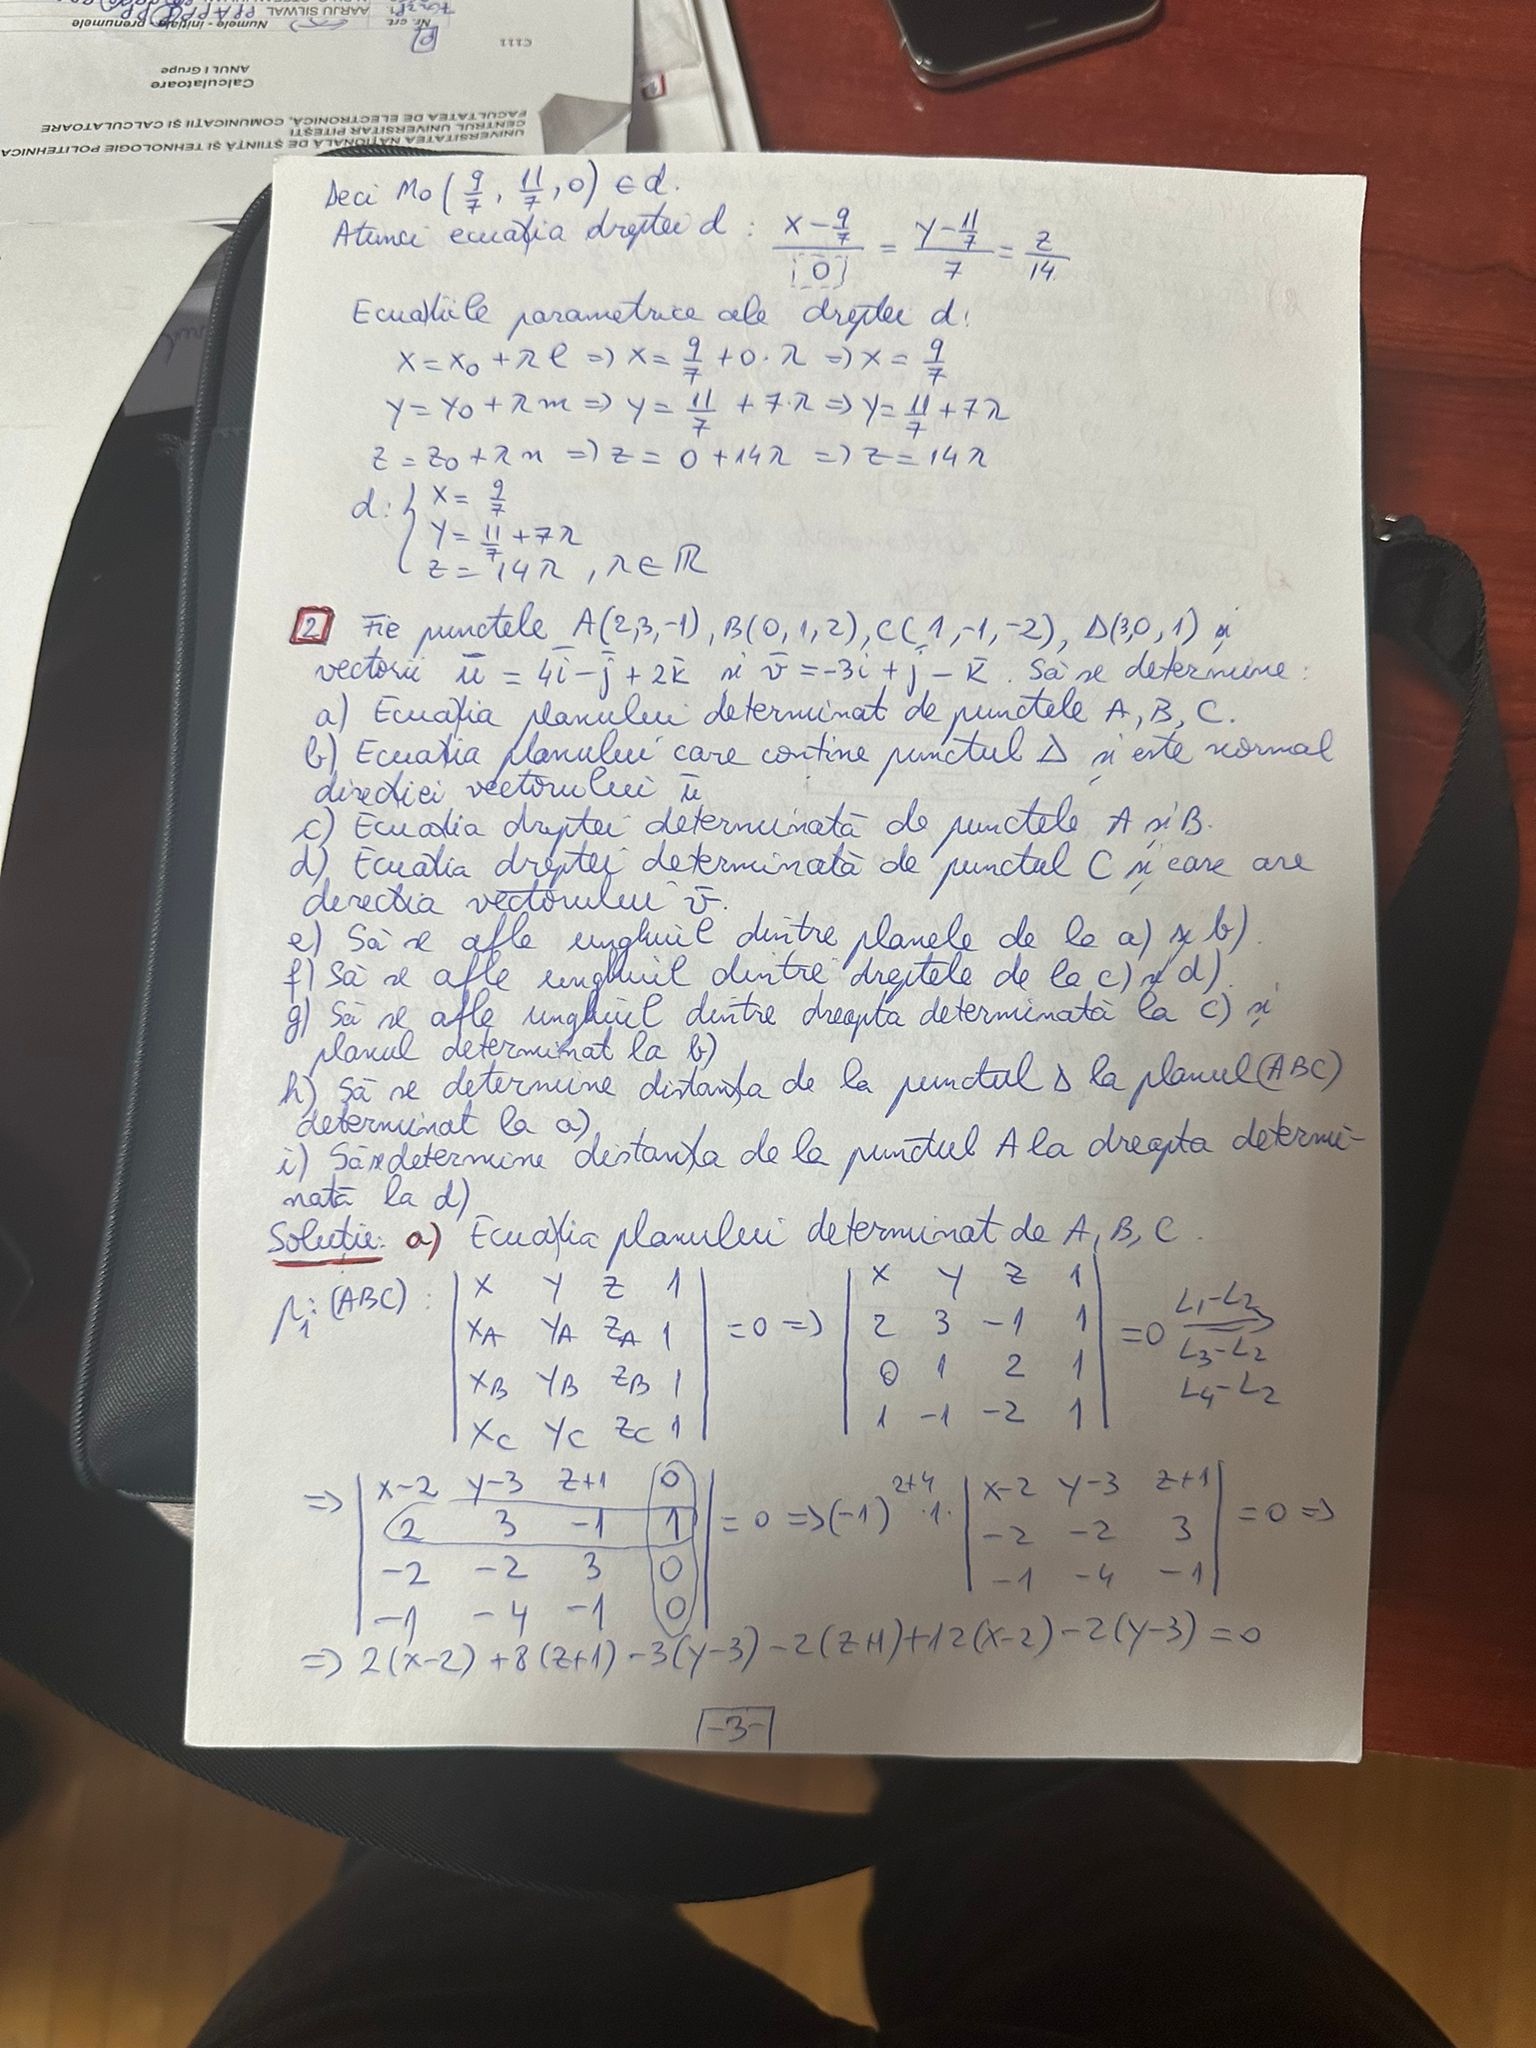 C111
UNIVERSITATEA NAȚIONALĂ DE ȘTIINȚĂ ȘI TEHNOLOGIE POLITEHNICA
CENTRUL UNIVERSITAR PITEȘTI
FACULTATEA DE ELECTRONICĂ, COMUNICAȚII ȘI CALCULATOARE
Calculatoare
ANUL I Grupe
Nr. crt.
Numele - inițiala - prenumele
AARJU SILWAL
Deci M₀(9/7, 11/7, 0) ∈ d.
Atunci ecuația dreptei d : (x-9/7)/0 = (y-11/7)/7 = z/14
Ecuațiile parametrice ale dreptei d:
x = x₀ + λl => x = 9/7 + 0·λ => x = 9/7
y = y₀ + λm => y = 11/7 + 7·λ => y = 11/7 + 7λ
z = z₀ + λn => z = 0 + 14λ => z = 14λ
d: { x = 9/7
y = 11/7 + 7λ
z = 14λ , λ ∈ ℝ
2 Fie punctele A(2,3,-1), B(0,1,2), C(1,-1,-2), D(3,0,1) și
vectorii ū = 4i̅ - j̅ + 2k̅ și v̅ = -3i̅ + j̅ - k̅. Să se determine:
a) Ecuația planului determinat de punctele A, B, C.
b) Ecuația planului care conține punctul D și este normal
direcției vectorului ū
c) Ecuația dreptei determinată de punctele A și B.
d) Ecuația dreptei determinată de punctul C și care are
direcția vectorului v̅.
e) Să se afle unghiul dintre planele de la a) și b).
f) Să se afle unghiul dintre dreptele de la c) și d).
g) Să se afle unghiul dintre dreapta determinată la c) și
planul determinat la b)
h) Să se determine distanța de la punctul D la planul (ABC)
determinat la a)
i) Să se determine distanța de la punctul A la dreapta determi-
nată la d)
Soluție: a) Ecuația planului determinat de A, B, C.
p₁: (ABC) : | x y z 1 | = 0 => | x y z 1 | = 0 L₁-L₂
| xA yA zA 1 | | 2 3 -1 1 | L₃-L₂
| xB yB zB 1 | | 0 1 2 1 | L₄-L₂
| xC yC zC 1 | | 1 -1 -2 1 |
=> | x-2 y-3 z+1 0 | = 0 => (-1)²⁺⁴·1· | x-2 y-3 z+1 | = 0 =>
| 2 3 -1 1 | | -2 -2 3 |
| -2 -2 3 0 | | -1 -4 -1 |
| -1 -4 -1 0 |
=> 2(x-2) + 8(z+1) - 3(y-3) - 2(z+1) + 12(x-2) - 2(y-3) = 0
-3-